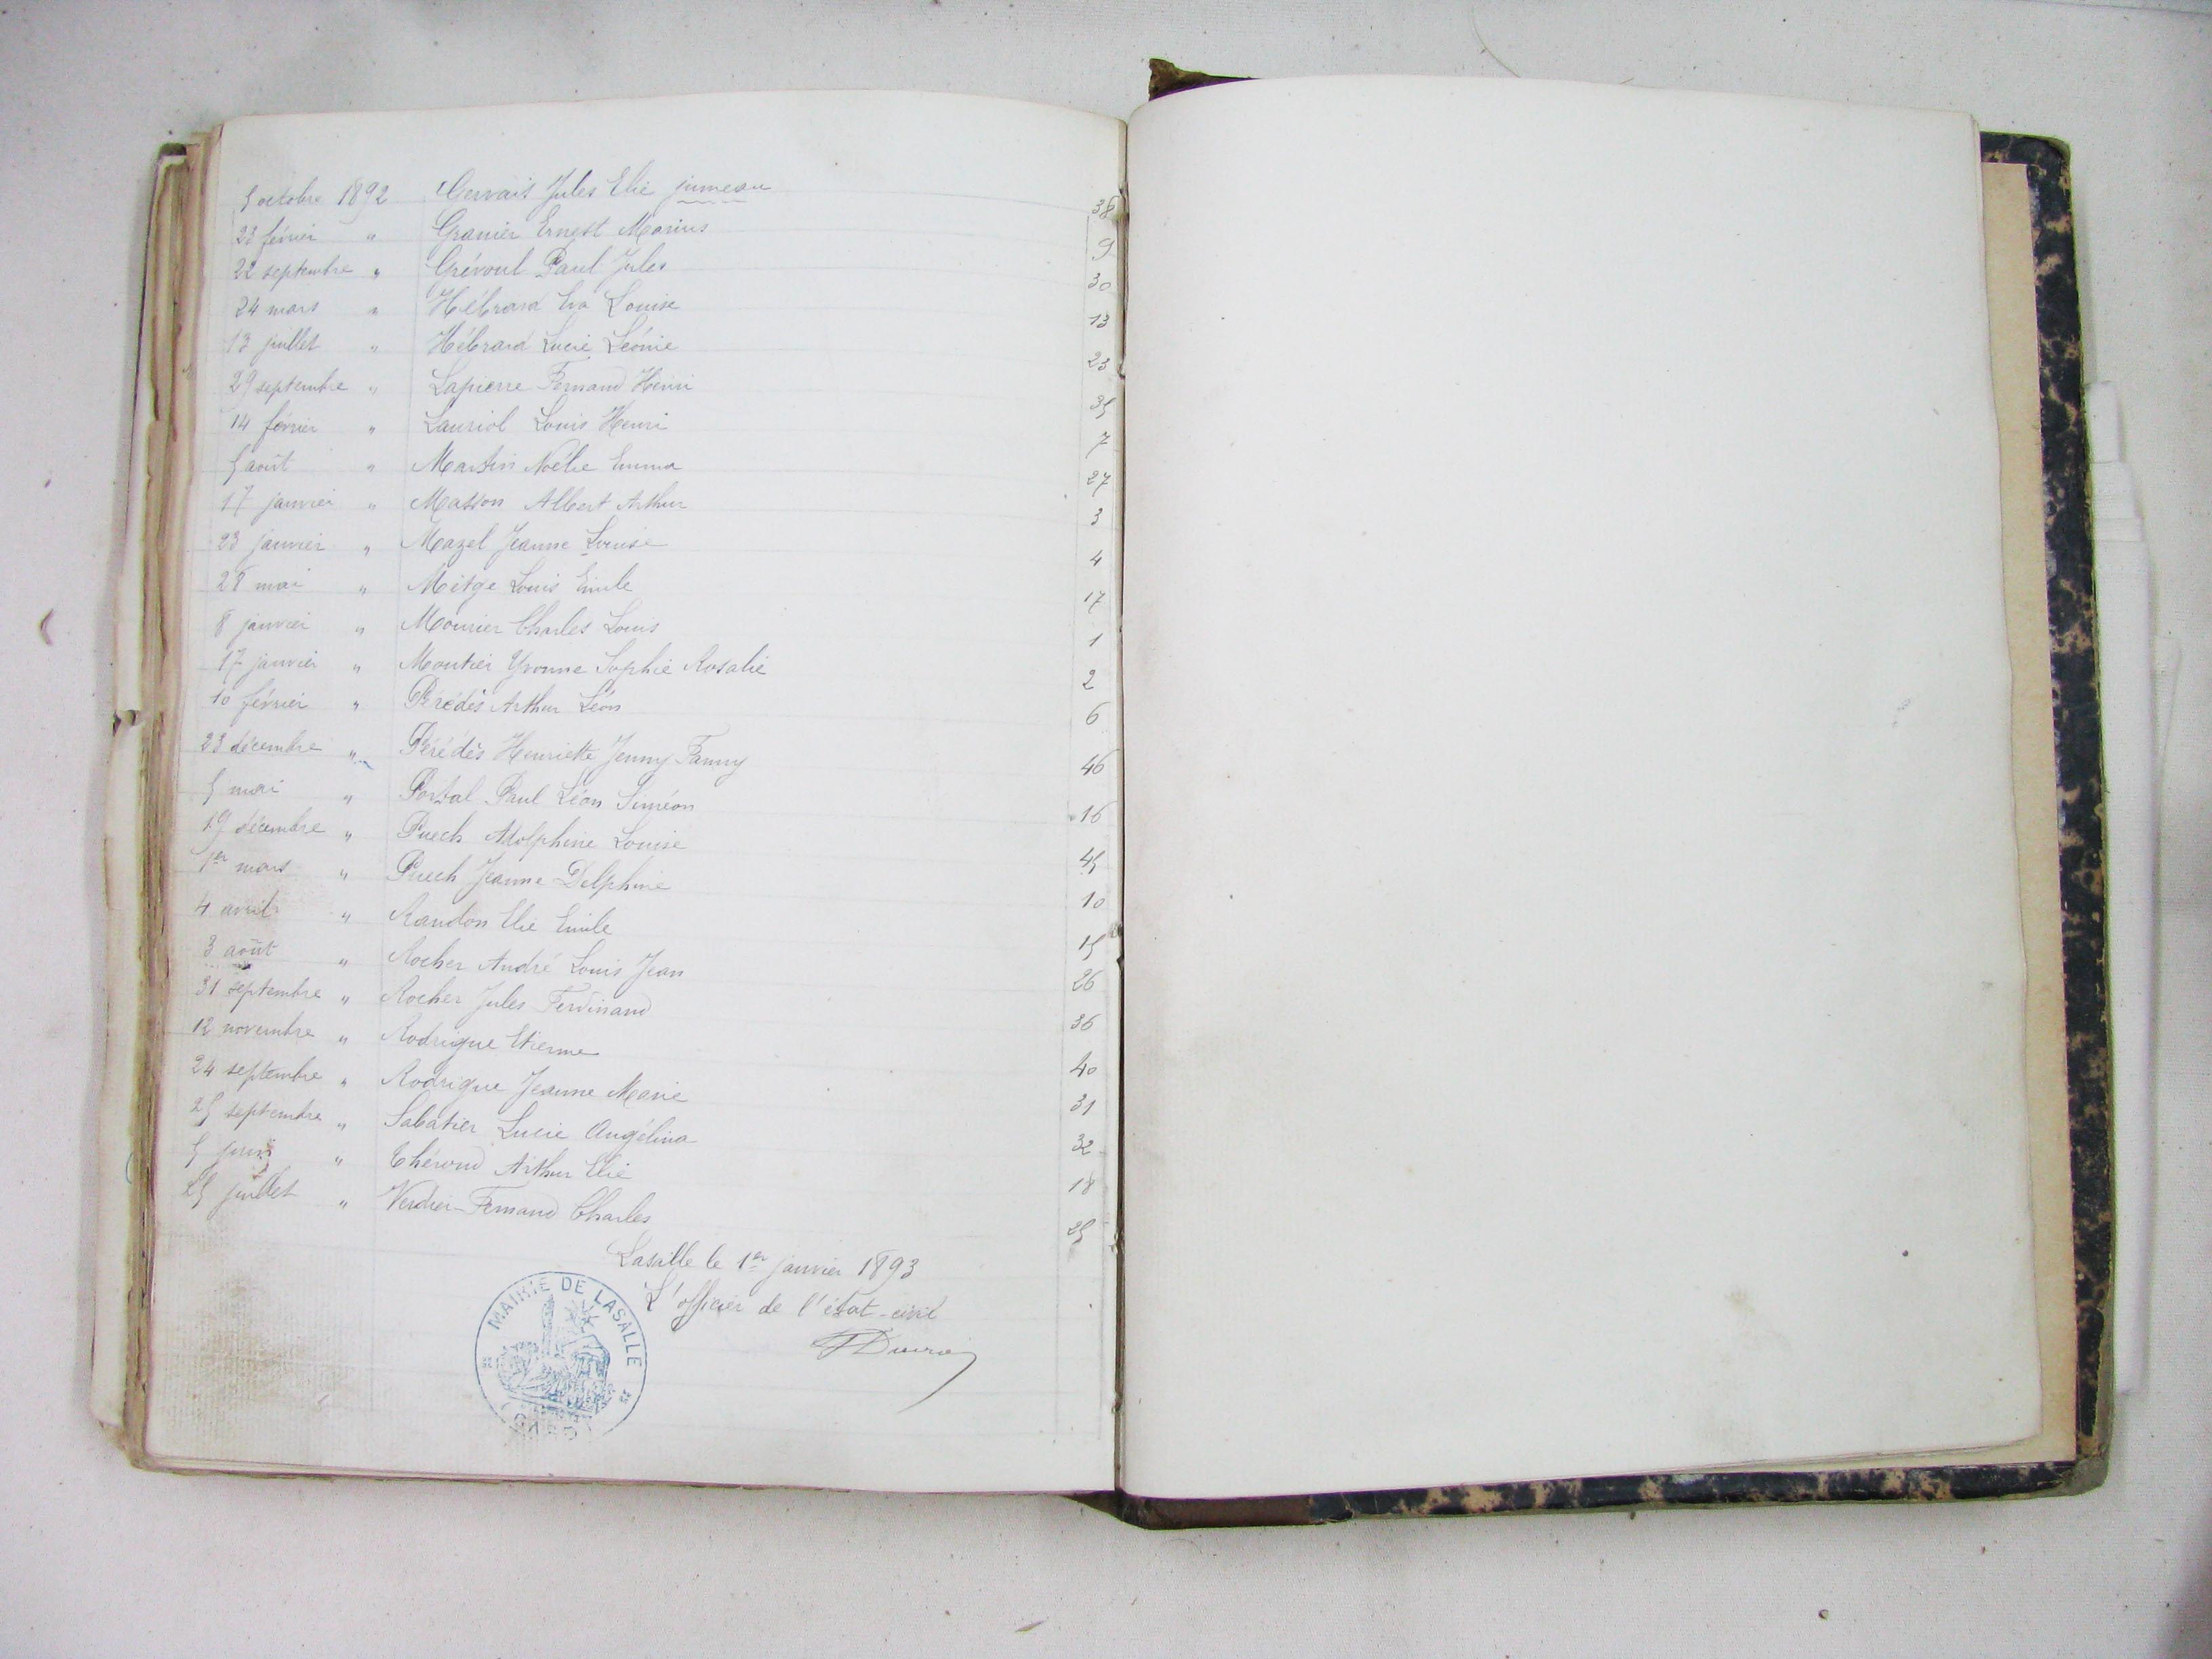 5 octobre 1892 Gervais Jules Elie jumeau 38
23 février " Granier Ernest Marius 9
22 septembre " Grévoul Paul Jules 30
24 mars " Hébrard Eva Louise 13
13 juillet " Hébrard Lucie Léonie 23
29 septembre " Lapierre Fernand Henri 35
14 février " Lauriol Louis Henri 7
5 août " Martin Noélie Emma 27
17 janvier " Masson Albert Arthur 3
23 janvier " Mazel Jeanne Louise 4
28 mai " Meitge Louis Emile 17
8 janvier " Mourier Charles Louis 1
17 janvier " Moutier Yvonne Sophie Rosalie 2
10 février " Pérédès Arthur Léon 6
23 décembre " Pérédès Henriette Jenny Fanny 46
5 mai " Portal Paul Léon Siméon 16
19 décembre " Puech Adolphine Louise 45
1er mars " Puech Jeanne Delphine 10
4 avril " Randon Elie Emile 15
3 août " Rocher André Louis Jean 26
31 septembre " Rocher Jules Ferdinand 36
12 novembre " Rodrigue Etienne 40
24 septembre " Rodrigue Jeanne Marie 31
25 septembre " Sabatier Lucie Angélina 32
5 juin " Thérond Arthur Elie 18
25 juillet " Verdier Fernand Charles 25
Lasalle le 1er janvier 1893
L'officier de l'état-civil
MAIRIE DE LASALLE
(GARD)